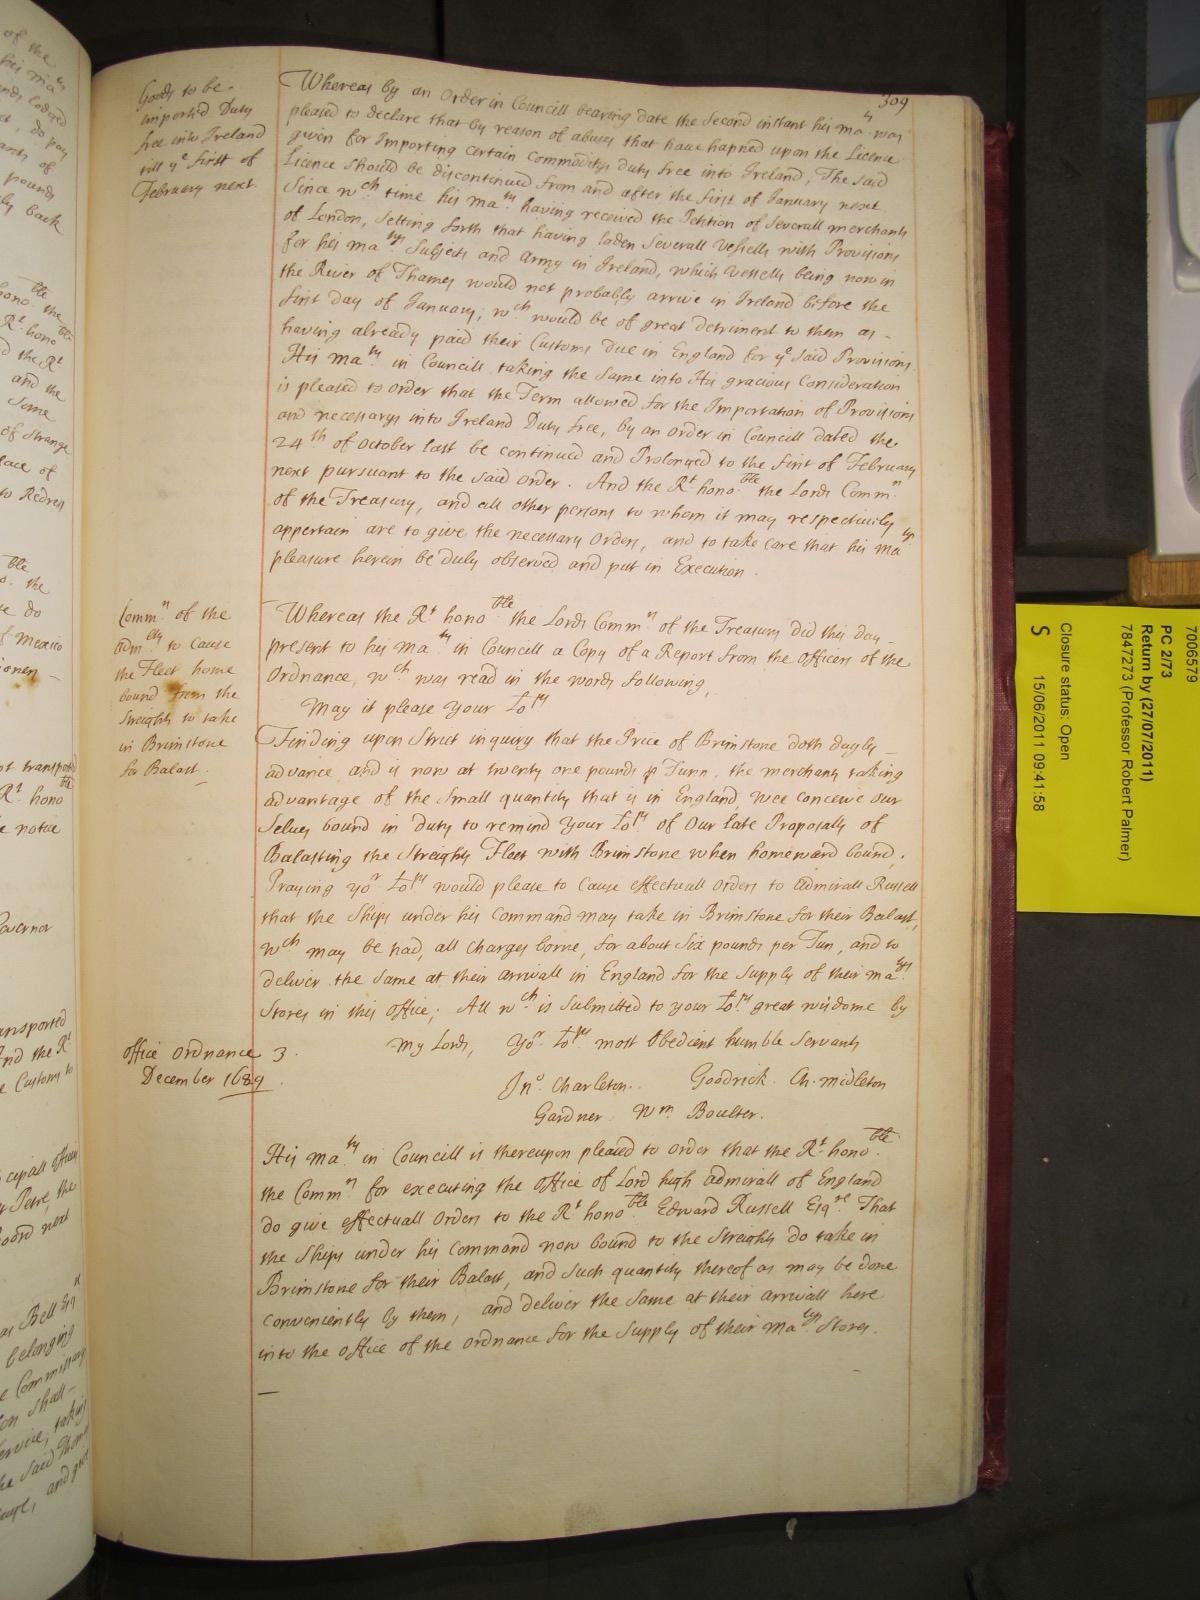 309
Goods to be
imported Duty
free into Ireland
till ye first of
February next
Whereas by an Order in Councill bearing date the Second instant his Maty was
pleased to declare that by reason of abuses that have hapned upon the Licence
given for Importing certain Commoditys duty free into Ireland, The said
Licence should be discontinued from and after the first of January next
Since wch time his Maty having received the Petition of Severall merchants
of London, Setting forth that having laden Severall Vessells with Provisions
for his Matys Subjects and Army in Ireland, which vessells being now in
the River of Thames would not probably arrive in Ireland before the
first day of January; wch would be of great detriment to them as -
having already paid their Customs due in England for ye said Provisions
His Maty in Councill taking the Same into His gracious Consideration
is pleased to order that the Term allowed for the Importation of Provisions
and necessarys into Ireland Duty free, by an order in Councill dated the
24th of October last be continued and Prolonged to the first of February
next pursuant to the said order. And the Rt honoble the Lords Commrs
of the Treasury, and all other persons to whom it may respectively
appertain are to give the necessary Orders, and to take care that his Matys
pleasure herein be duly observed and put in Execution.
Commrs of the
Admlty to cause
the Fleet home
bound from the
Streights to take
in Brimstone
for Balast.
Whereas the Rt honoble the Lords Commrs of the Treasury did this day -
present to his Maty in Councill a Copy of a Report from the Officers of the
Ordnance, wch was read in the words following,
May it please Your Lopps
Finding upon Strict inquiry that the Price of Brimstone doth dayly -
advance, and is now at twenty one pounds p Tunn, the merchants taking
advantage of the Small quantity that is in England, wee conceive our
Selves bound in Duty to remind Your Lopps of Our late Proposalls of
Balasting the Streights Fleet with Brimstone when homeward bound,
Praying yor Lopps would please to Cause effectuall Orders to Admirall Russell
that the Ships under his Command may take in Brimstone for their Balast,
wch may be had, all charges borne, for about Six pounds per Tun, and to
deliver the same at their arrivall in England for the Supply of their Matys
Stores in this Office; All wch is Submitted to your Lopps great wisdome by
My Lords, Yor Lopps most Obedient humble Servants
Office Ordnance 3.
December 1689.
Jno Charleton. Goodrick. Ch. Midleton
Gardner Wm Boulter.
His Maty in Councill is thereupon pleased to order that the Rt honoble
the Commrs for executing the Office of Lord high Admirall of England
do give effectuall Orders to the Rt honoble Edward Russell Esqre That
the Ships under his Command now bound to the Streights do take in
Brimstone for their Balast, and Such quantity thereof as may be done
conveniently by them, and deliver the same at their arrivall here
into the Office of the Ordnance for the Supply of their Matys Stores.
7006579
PC 2/73
Return by (27/07/2011)
7847273 (Professor Robert Palmer)
Closure status: Open
S 15/06/2011 09:41:58